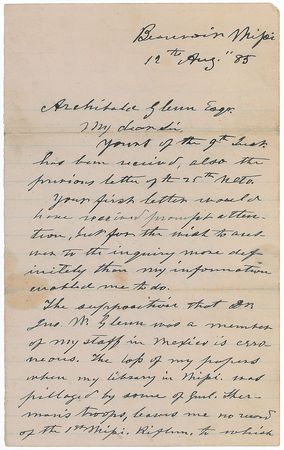 Beauvoir Missi.
12th Aug." 85
Archibald Glenn Esqr.
My dear Sir,
Yours of the 9th Inst.
has been recived, also the
previous letter of the 25th Ulto.
Your first letter would
have received prompt atten-
tion, but for the wish to ans-
wer to the inquiry more def-
initely than my information
enabled me to do.
The supposition that Dr.
Jno. W. Glenn was a member
of my staff in Mexico is erro
neous. The loss of my papers
when my library in Missi. was
pillaged by some of Genl. Sher-
man's troops, leaves me no record
of the 1st Missi. Riflm. to which